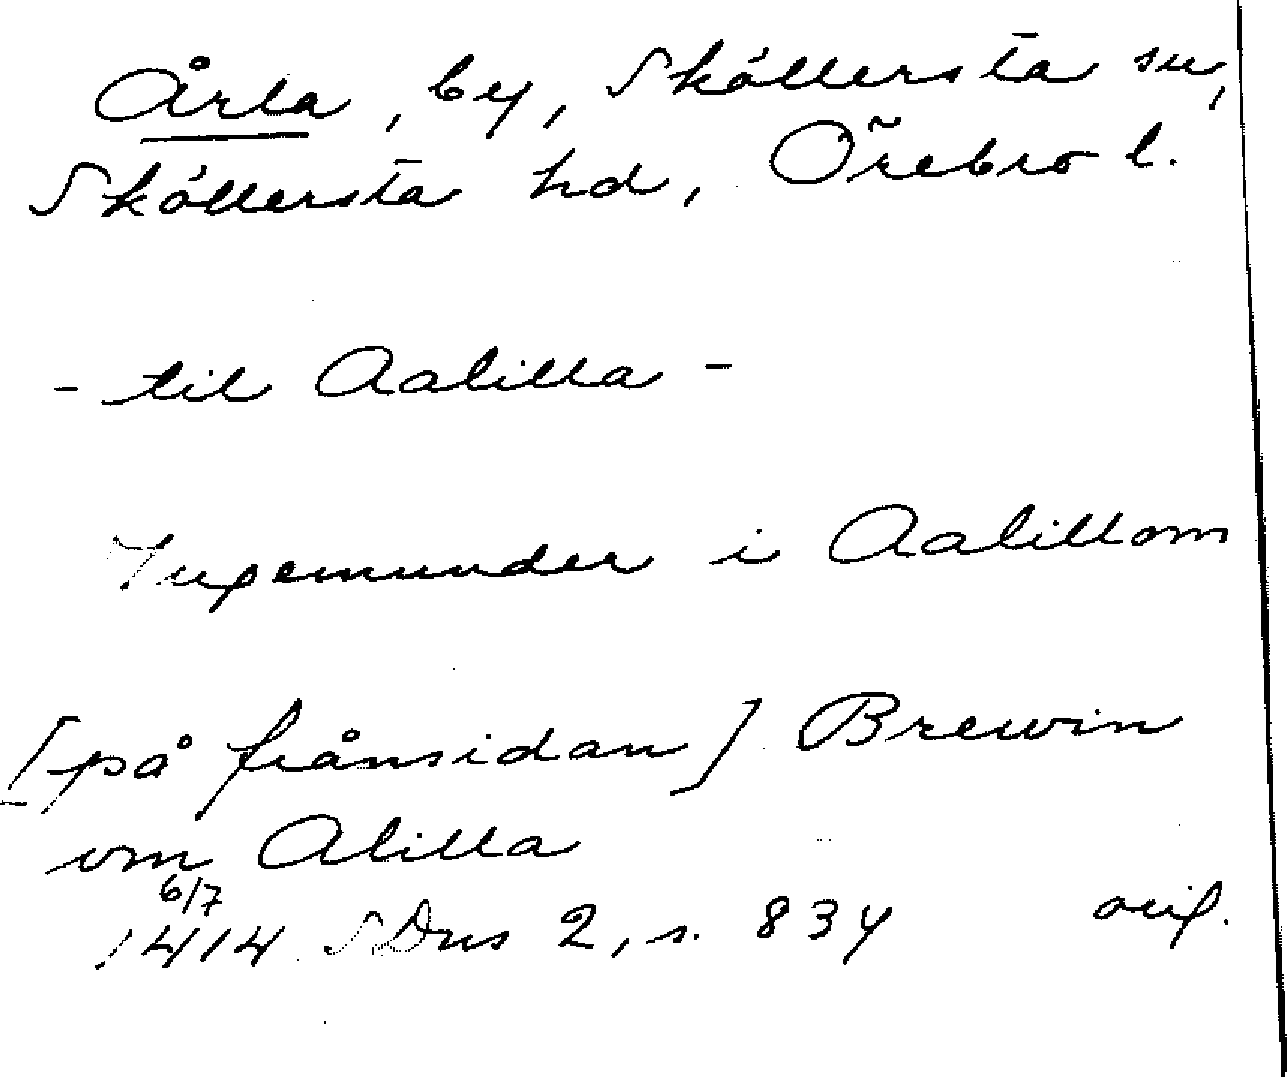 Årla, by, Sköllersta sn,
Sköllersta hd, Örebro l.
- til Aalilla -
Ingemunder i Aalillom
[på frånsidan] Brewin
vm Alilla
6/7
1414 SDns 2, s. 834 orig.